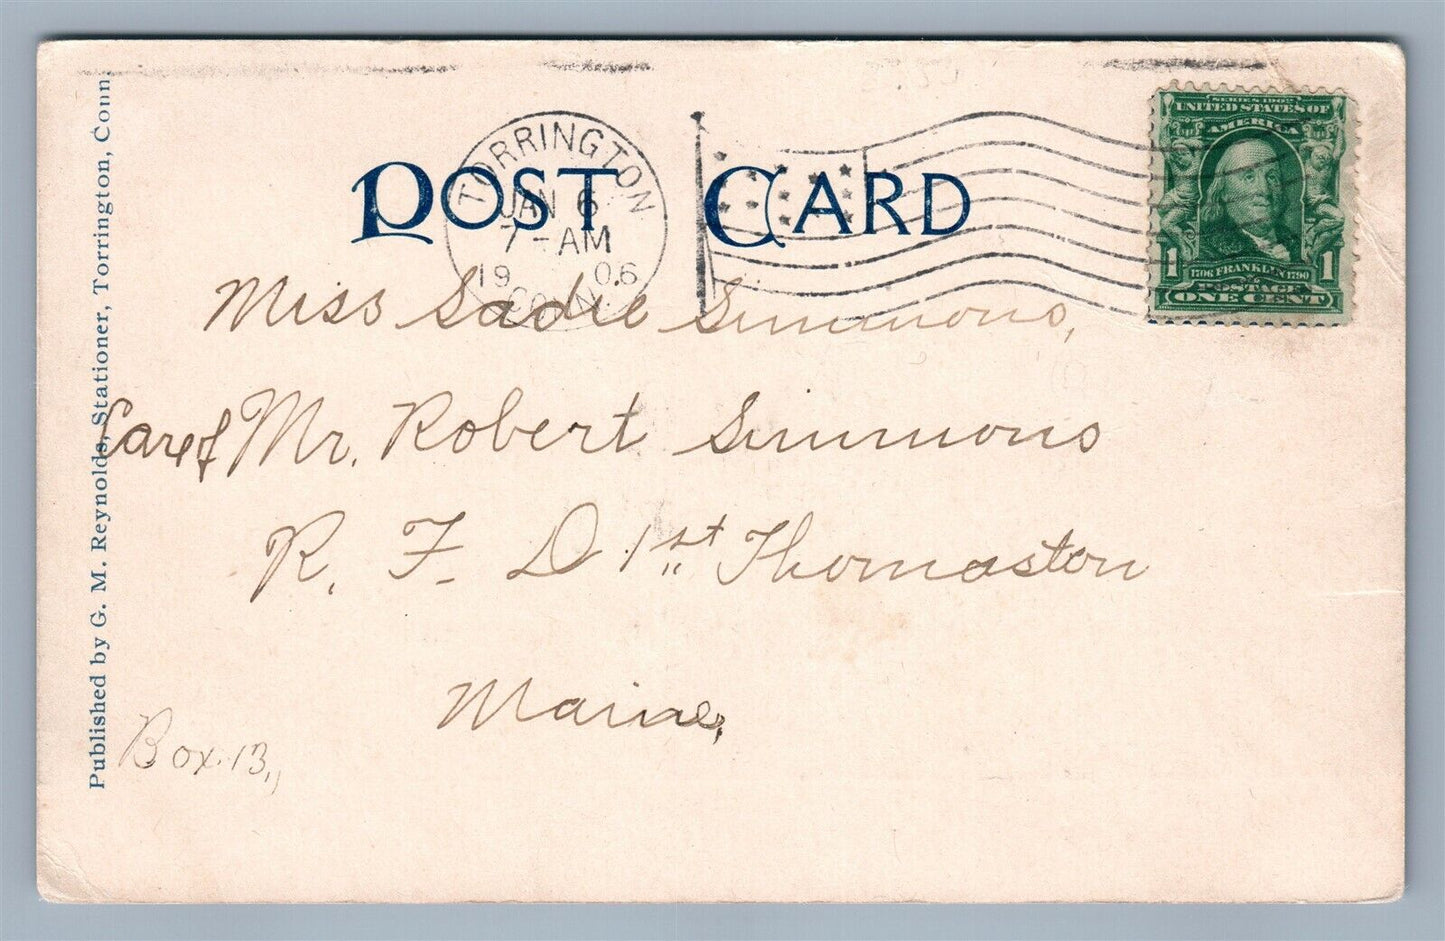 POST CARD
TORRINGTON
JAN 6
7-AM
1906
CONN.
SERIES 1902
UNITED STATES OF
AMERICA
1 1706 FRANKLIN 1790 1
POSTAGE
ONE CENT
Miss Sadie Simmons,
Care of Mr. Robert Simmons
R. F. D 1st Thomaston
Maine,
Box. 13,,
Published by G. M. Reynolds, Stationer, Torrington, Conn.